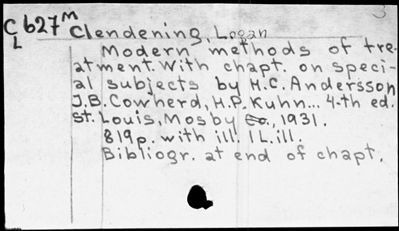 3
C b27m Clendening, Logan
L
Modern methods of tre-
atment. With chapt. on speci-
al subjects by H.C. Andersson
J.B. Cowherd, H.P. Kuhn... 4-th ed.
St. Louis, Mosby Co., 1931.
819p. with ill. 1 L. ill.
Bibliogr. at end of chapt.